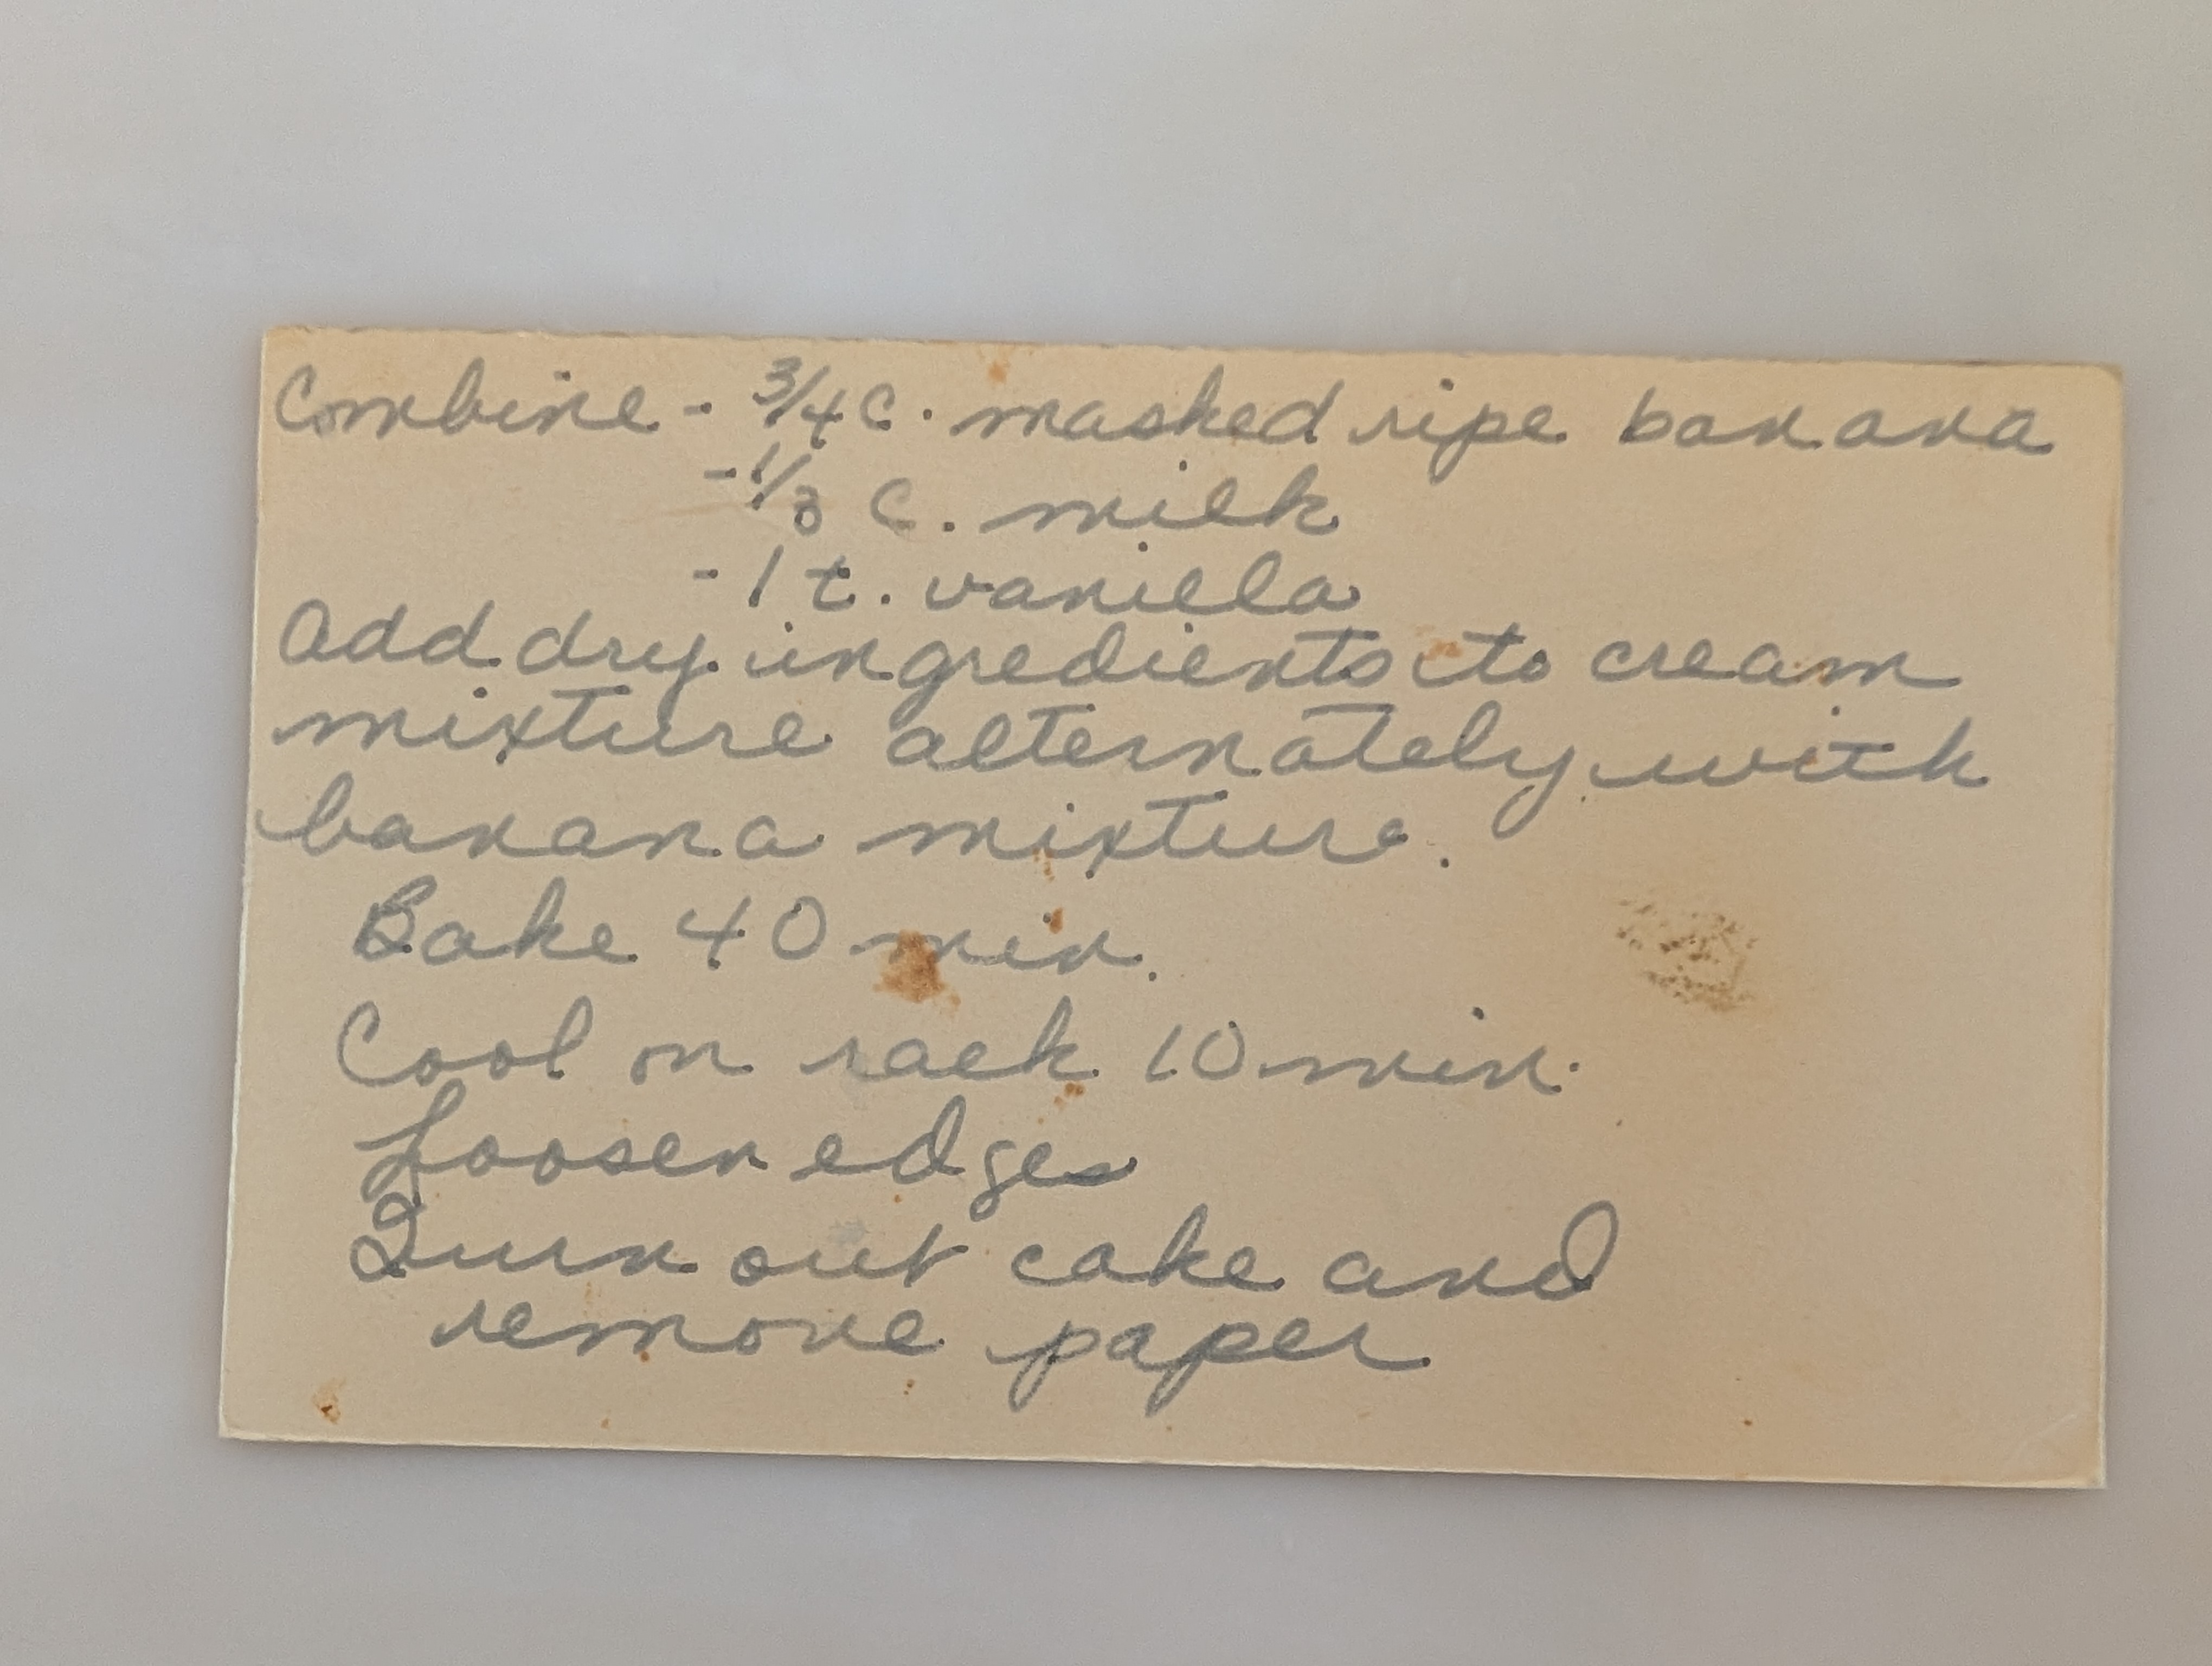 Combine - 3/4 c. mashed ripe banana
- 1/3 c. milk
- 1 t. vanilla
Add dry ingredients to cream
mixture alternately with
banana mixture.
Bake 40 min.
Cool on rack 10 min.
Loosen edges
Turn out cake and
remove paper